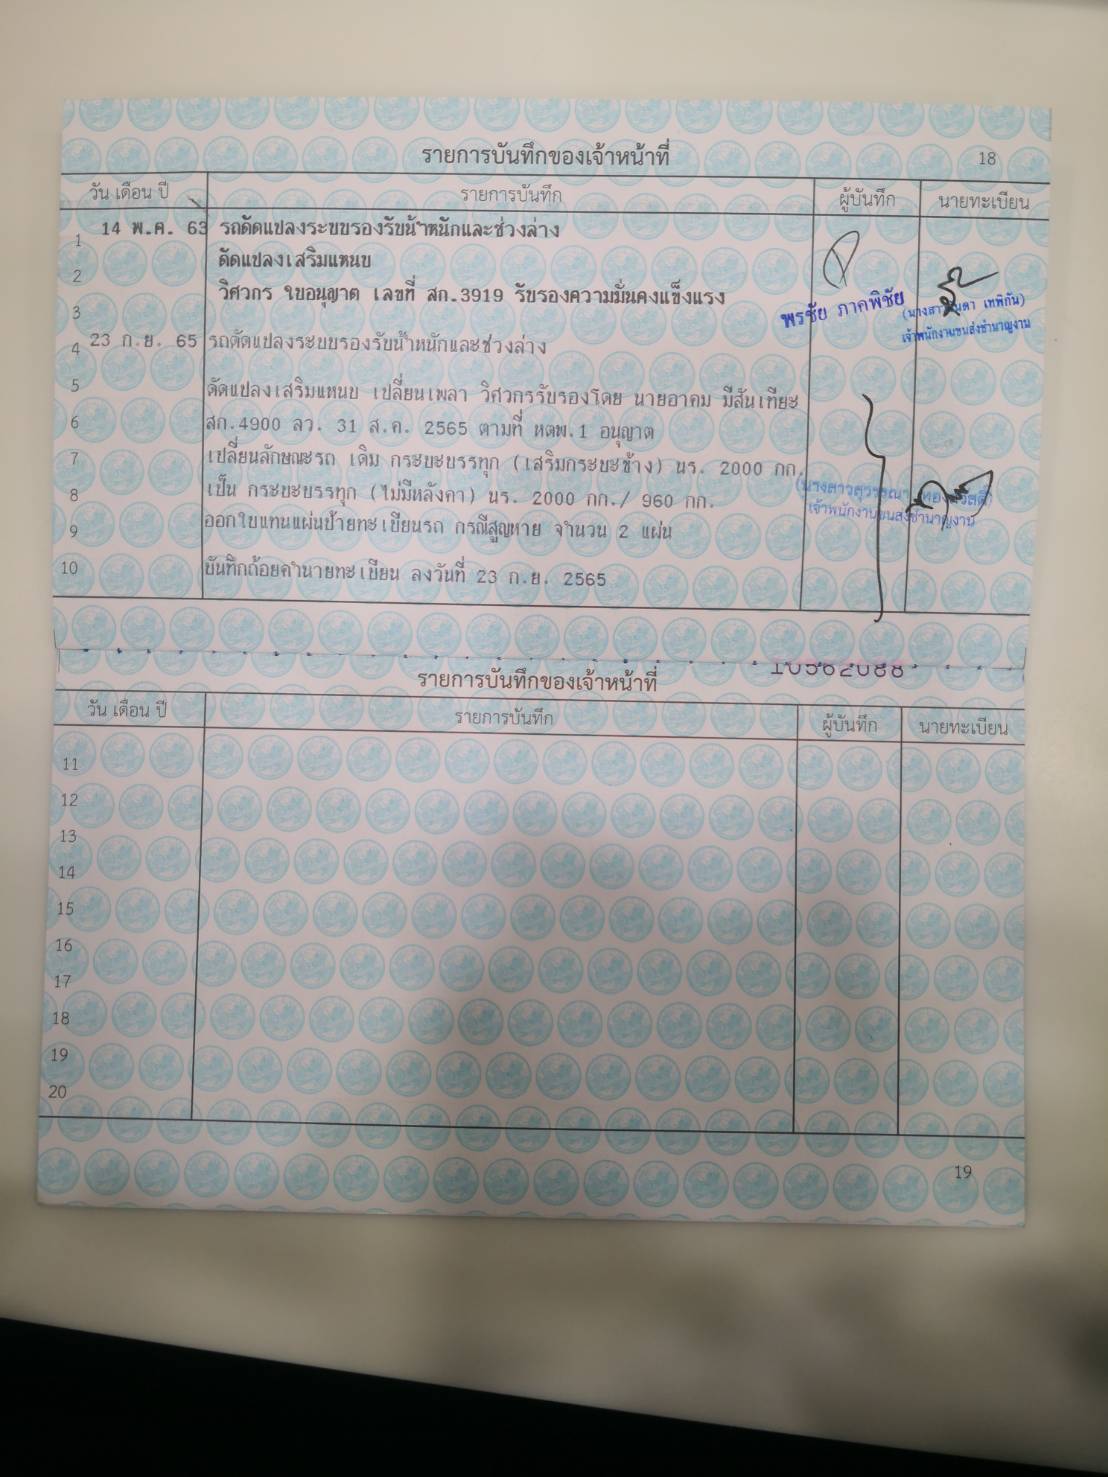 รายการบันทึกของเจ้าหน้าที่ 18
วัน เดือน ปี รายการบันทึก ผู้บันทึก นายทะเบียน
1 14 พ.ค. 63 รถดัดแปลงระบบรองรับน้ำหนักและช่วงล่าง
2 ดัดแปลงเสริมแหนบ
3 วิศวกร ใบอนุญาต เลขที่ สก.3919 รับรองความมั่นคงแข็งแรง
พรชัย ภาคพิชัย
เทพิกัน)
เจ้าพนักงานขนส่งชำนาญงาน
4 23 ก.ย. 65 รถดัดแปลงระบบรองรับน้ำหนักและช่วงล่าง
5 ดัดแปลงเสริมแหนบ เปลี่ยนเพลา วิศวกรรับรองโดย นายอาคม มีสันเทียะ
6 สก.4900 ลว. 31 ส.ค. 2565 ตามที่ หตพ.1 อนุญาต
7 เปลี่ยนลักษณะรถ เดิม กระบะบรรทุก (เสริมกระบะข้าง) นร. 2000 กก.
8 เป็น กระบะบรรทุก (ไม่มีหลังคา) นร. 2000 กก./ 960 กก.
(นางสาวสุวรรณา
เจ้าพนักงานขนส่งชำนาญงาน
9 ออกใบแทนแผ่นป้ายทะเบียนรถ กรณีสูญหาย จำนวน 2 แผ่น
10 บันทึกถ้อยคำนายทะเบียน ลงวันที่ 23 ก.ย. 2565
10562088
รายการบันทึกของเจ้าหน้าที่
วัน เดือน ปี รายการบันทึก ผู้บันทึก นายทะเบียน
11
12
13
14
15
16
17
18
19
20
19